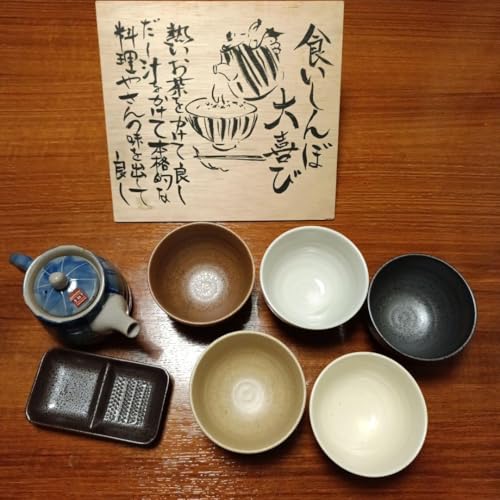 食いしんぼ
大喜び
熱いお茶をかけて良し
だし汁をかけて本格的な
料理やさんの味を出して
良し